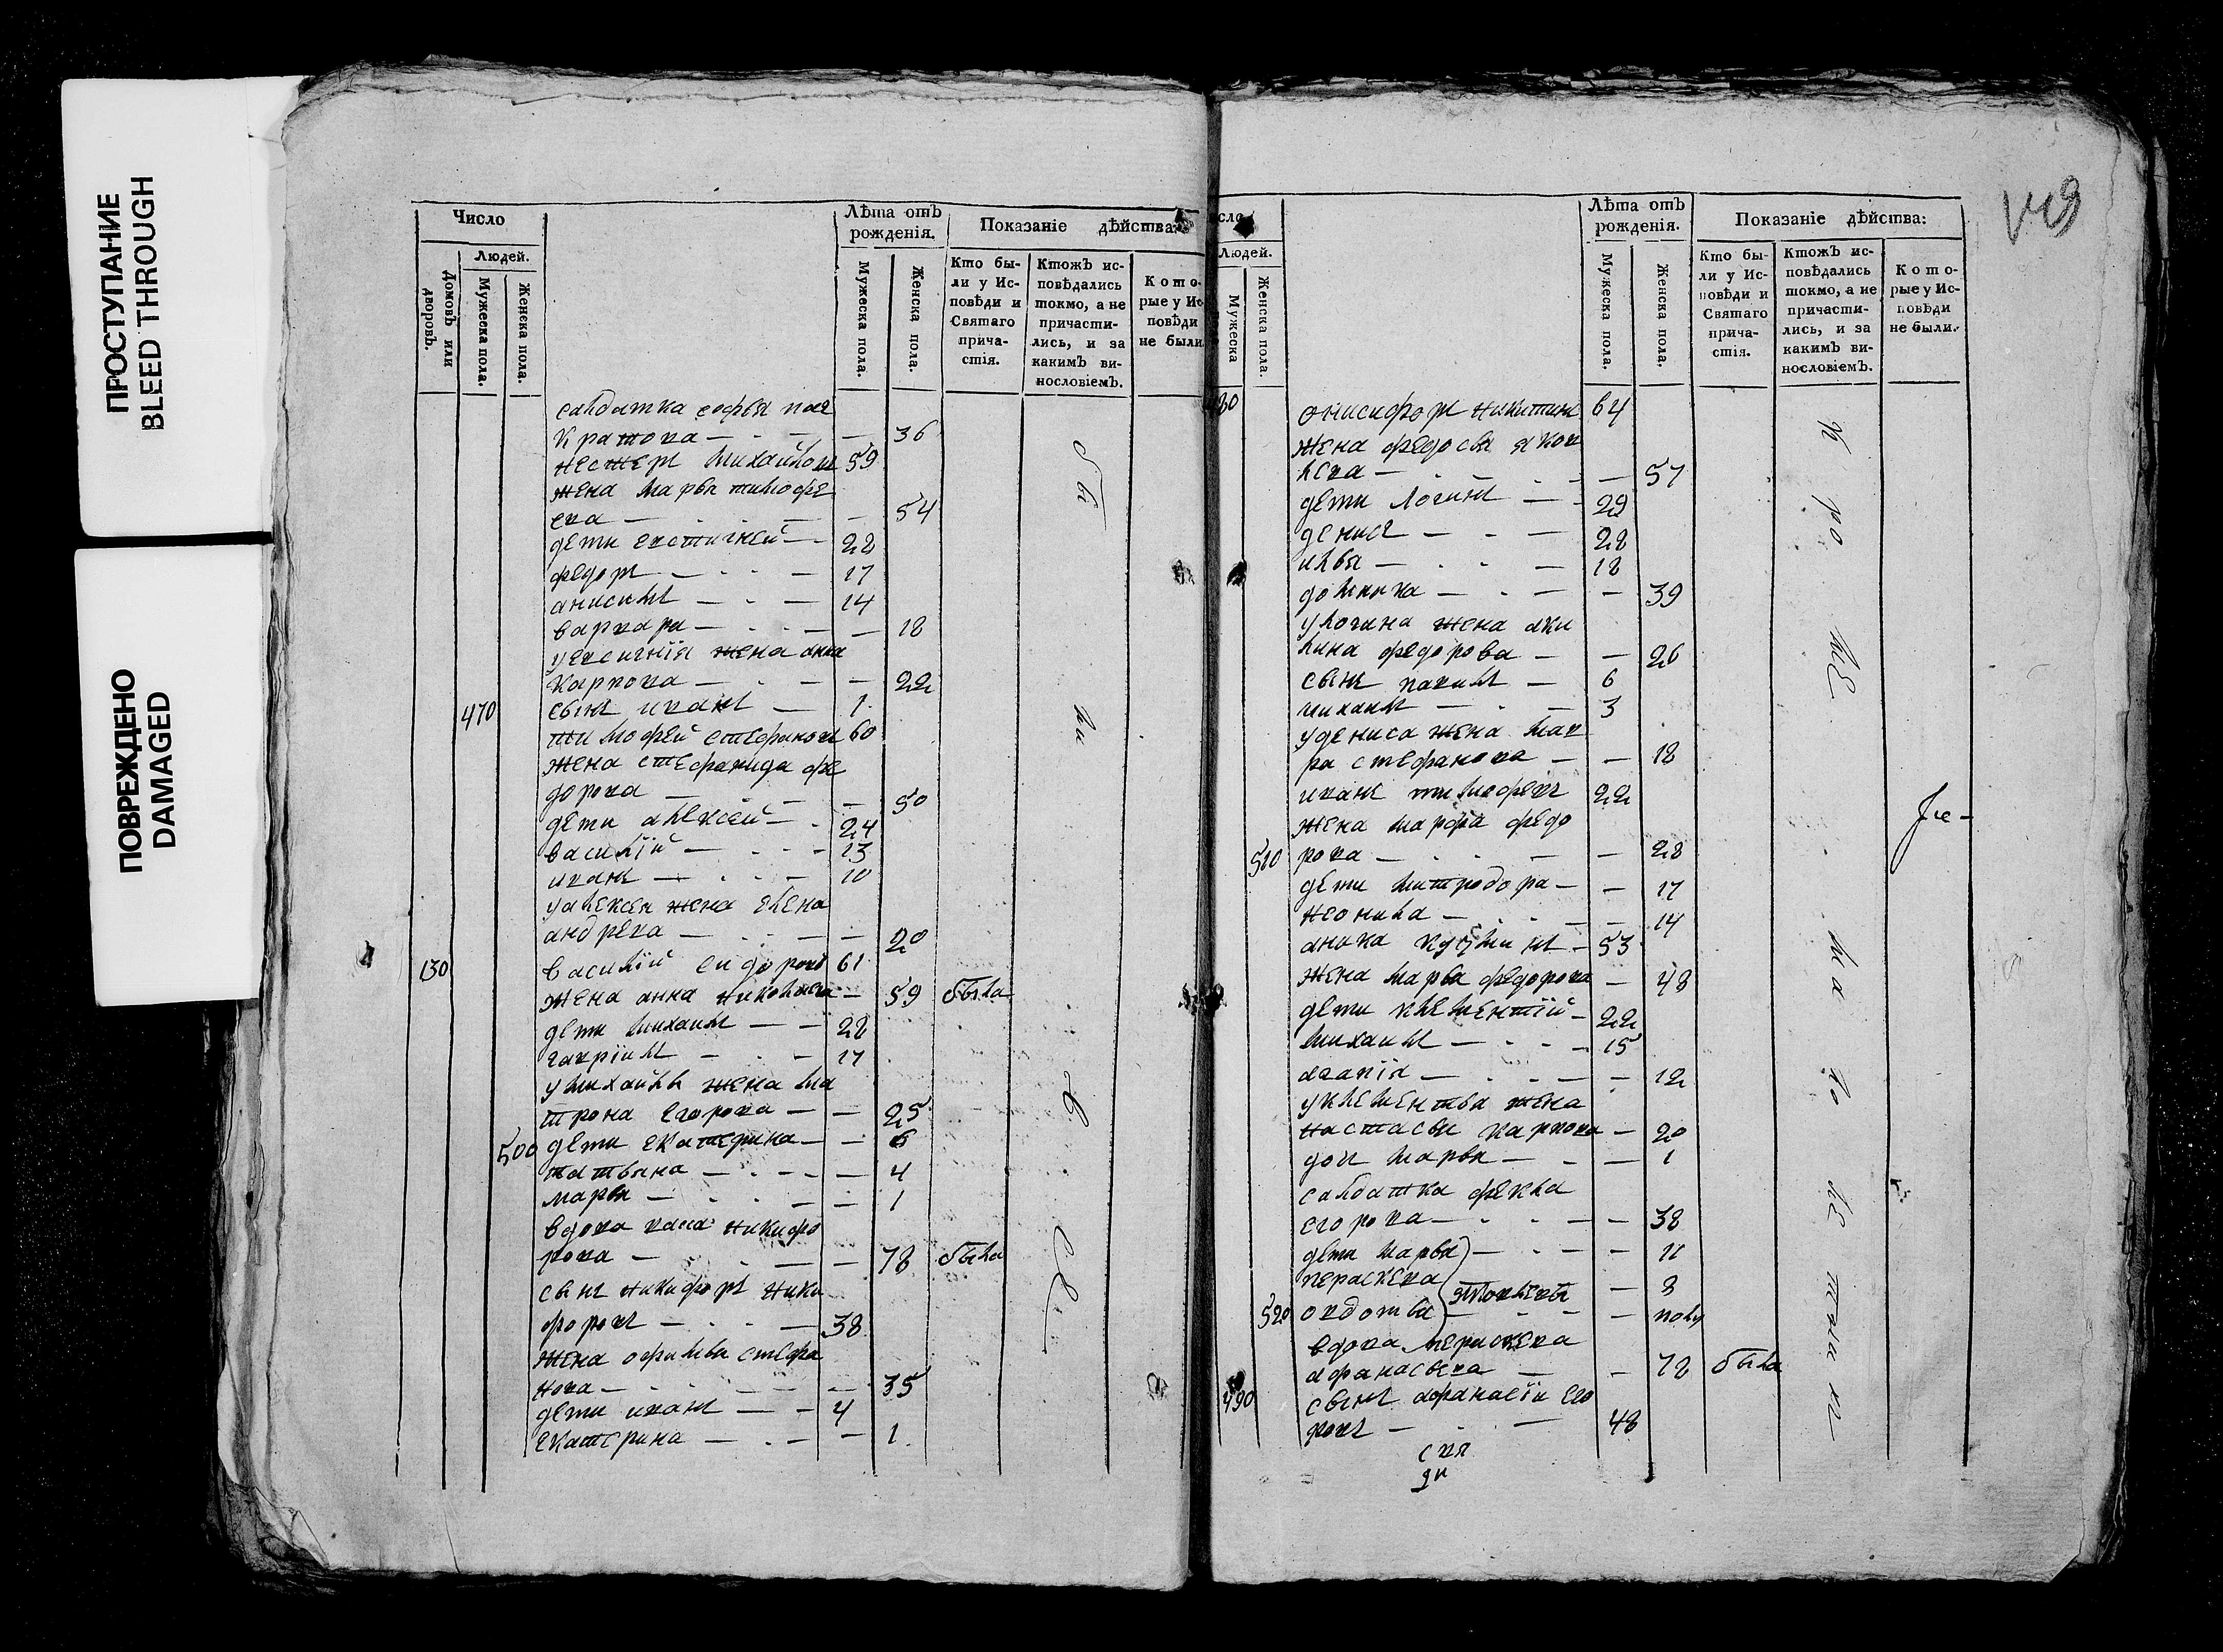 ПРОСТУПАНИЕ
BLEED THROUGH
ПОВРЕЖДЕНО
DAMAGED
Число
Людей.
Домовъ или дворовъ.
Мужеска пола.
Женска пола.
Лѣта отъ рожденія.
Мужеска пола.
Женска пола.
Показаніе дѣйства:
Кто бы-
ли у Ис-
повѣди и
Святаго
прича-
стія.
Ктожъ ис-
повѣдались
токмо, а не
причасти-
лись, и за
какимъ ви-
нословіемъ.
Кото-
рые у Ис
повѣди
не были.
салдатка софья
36
нестеръ михайловъ 59
жена марья тимофе
ева — 54
дети евстигней — 28
федоръ — 17
анисимъ — 14
варвара — 18
жена анна
карпова — 22
470 сынъ иванъ — 1
тимофей стефановъ 60
жена стефанида фе
дорова — 50
дети алексей — 24
василій — 13
иванъ — 10
у алексея жена елена
андреева — 20
130 василій сидоровъ 61
жена анна николаева — 59 была
дети михаилъ — 28
гавріилъ — 17
у михайлы жена ма
трона егорова — 25
500 дети екатерина — 6
татьяна — 4
марья — 1
вдова васса никифо
рова — 78 была
сынъ никифоръ ники
форовъ — 38
жена офимья стефа
нова — 35
дети иванъ — 4
екатерина — 1
сло
Людей.
Мужеска
Женска пола.
Лѣта отъ рожденія.
Мужеска пола.
Женска пола.
Показаніе дѣйства:
Кто бы-
ли у Ис-
повѣди и
Святаго
прича-
стія.
Ктожъ ис-
повѣдались
токмо, а не
причасти-
лись, и за
какимъ ви-
нословіемъ.
Кото-
рые у Ис-
повѣди
не были.
онисифоръ никитинъ 64
жена федосья яков
лева — 57
дети логинъ — 29
денисъ — 28
илья — 18
домника — 39
у логина жена аки
лина федорова — 26
сынъ вавилъ — 6
михаилъ — 3
у дениса жена мав
ра стефанова — 18
иванъ тимофеевъ 22
жена марфа федо
510 рова — 28
дети митродора — 17
неонила — 14
аника кузминъ — 53
жена марья федорова — 48
дети клементій — 22
михаилъ — 15
агапія — 12
у клементья жена
настасья карпова — 20
дочь марья — 1
салдатка фекла
егорова — 38
дети марья — 11
пераскева — 8
520 овдотья — полу
вдова пераскева
афанасьева — 72 была
490 сынъ афанасій его
ровъ — 48